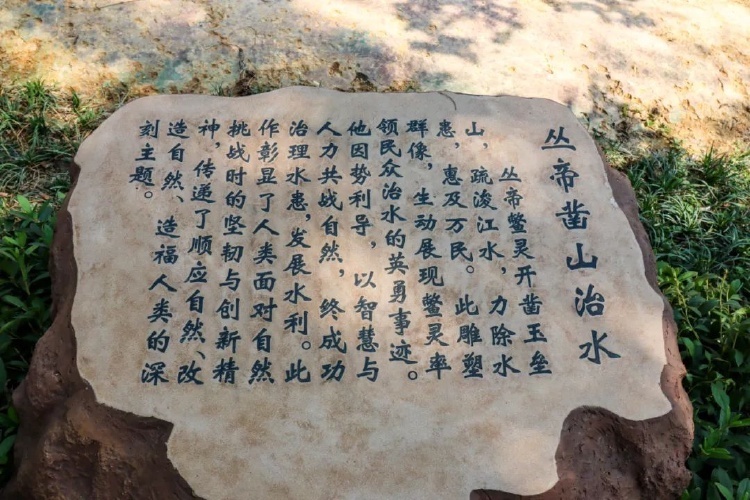 丛帝凿山治水
丛帝鳖灵开凿玉垒
山，疏浚江水，力除水
患，惠及万民。此雕塑
群像，生动展现鳖灵率
领民众治水的英勇事迹。
他因势利导，以智慧与
人力共战自然，终成功
治理水患，发展水利。此
作彰显了人类面对自然
挑战时的坚韧与创新精
神，传递了顺应自然、改
造自然、造福人类的深
刻主题。